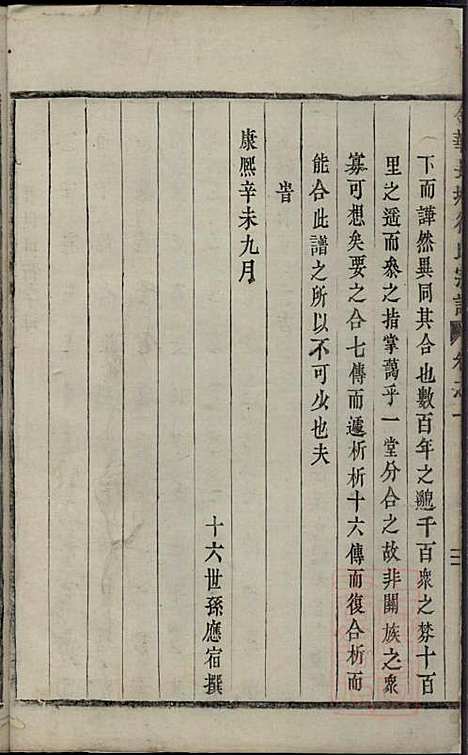 下而譁然異同其合也數百年之邈千百衆之棼十百
里之遥而叅之指掌藹乎一堂分合之故非關族之衆
寡可想矣要之合七傳而遞析析十六傳而復合析而
能合此譜之所以不可少也夫
旹
康熙辛未九月
十六世孫應宿撰